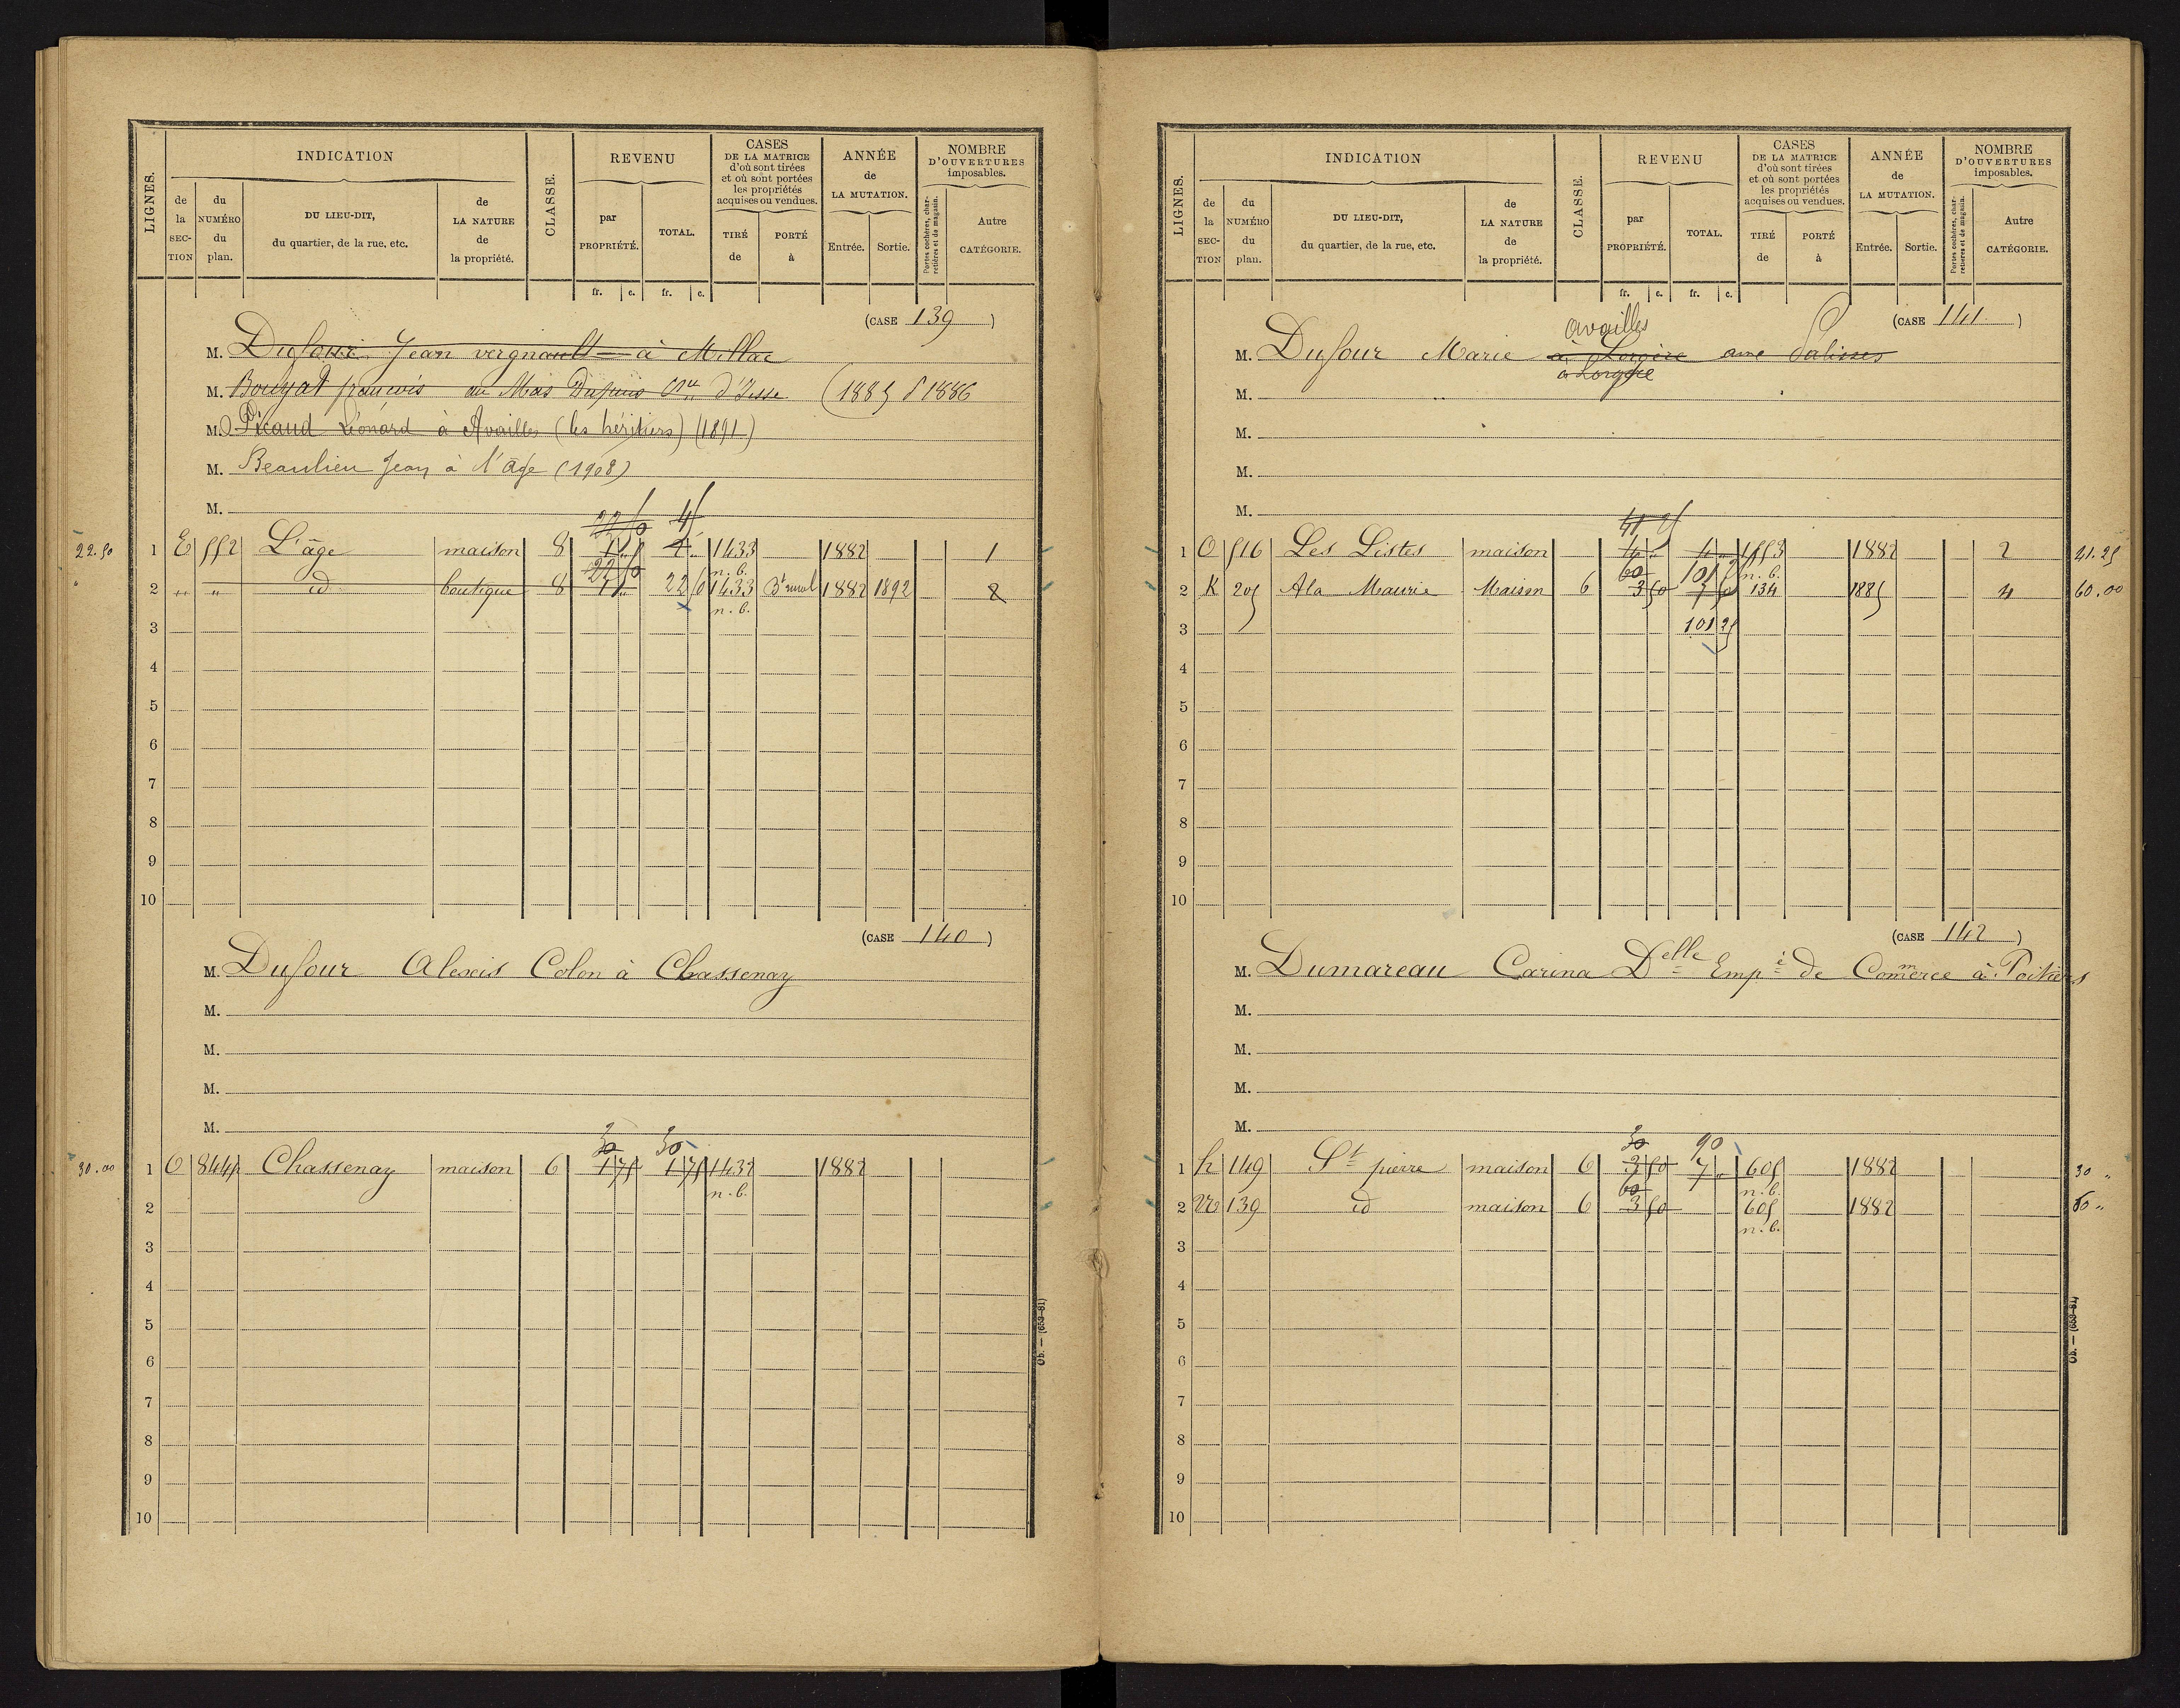 LIGNES.
INDICATION
de la SECTION
du NUMÉRO du plan.
DU LIEU-DIT, du quartier, de la rue, etc.
de LA NATURE de la propriété.
CLASSE.
REVENU
par PROPRIÉTÉ.
TOTAL.
fr. c. fr. c.
CASES DE LA MATRICE d'où sont tirées et où sont portées les propriétés acquises ou vendues.
TIRÉ de
PORTÉ à
ANNÉE de LA MUTATION.
Entrée. Sortie.
NOMBRE D'OUVERTURES imposables.
Portes cochères, charretières et de magasin.
Autre CATÉGORIE.
(CASE 139)
M. Dufour Jean vergnault à Millac
M. Bouyat françois au Mas Dupuis d'Jesse (1885 § 1886
M. Picaud Léonard à Availles (les héritiers) (1891)
M. Beaulieu Jean à l'âge (1908)
M.
22.50 1 E 552 L'âge maison 8 1433 n.b. 1882 1
2 " " id boutique 8 22 50 1433 n.b. Bt rural 1882 1892 2
3
4
5
6
7
8
9
10
(CASE 140)
M. Dufour Alexis Colon à Chassenay
M.
M.
M.
M.
30 30
30.00 1 O 844 Chassenay maison 6 1 75 1 75 1432 n.b. 1882
2
3
4
5
6
7
8
9
10
Ob. — (653-81)
LIGNES.
INDICATION
de la SECTION
du NUMÉRO du plan.
DU LIEU-DIT, du quartier, de la rue, etc.
de LA NATURE de la propriété.
CLASSE.
REVENU
par PROPRIÉTÉ.
TOTAL.
fr. c. fr. c.
CASES DE LA MATRICE d'où sont tirées et où sont portées les propriétés acquises ou vendues.
TIRÉ de
PORTÉ à
ANNÉE de LA MUTATION.
Entrée. Sortie.
NOMBRE D'OUVERTURES imposables.
Portes cochères, charretières et de magasin.
Autre CATÉGORIE.
(CASE 141)
availles
M. Dufour Marie à Lorgère
à Lorgère
M.
M.
M.
M.
41 25
1 O 516 Les Listes maison 4 " 4 " 1553 n.b. 1882 2 41.25
60 101 25
2 K 205 A la Maurie Maison 6 3 50 7 50 134 1885 4 60.00
3 101 25
4
5
6
7
8
9
10
(CASE 142)
M. Dumareau Carina Delle Empé de Comerce à Poitiers
M.
M.
M.
M.
30 90
1 h 149 St pierre maison 6 3 50 7 " 605 n.b. 1882 30 "
60
2 139 id maison 6 3 50 605 n.b. 1882 60 "
3
4
5
6
7
8
9
10
Ob. — (653-81)